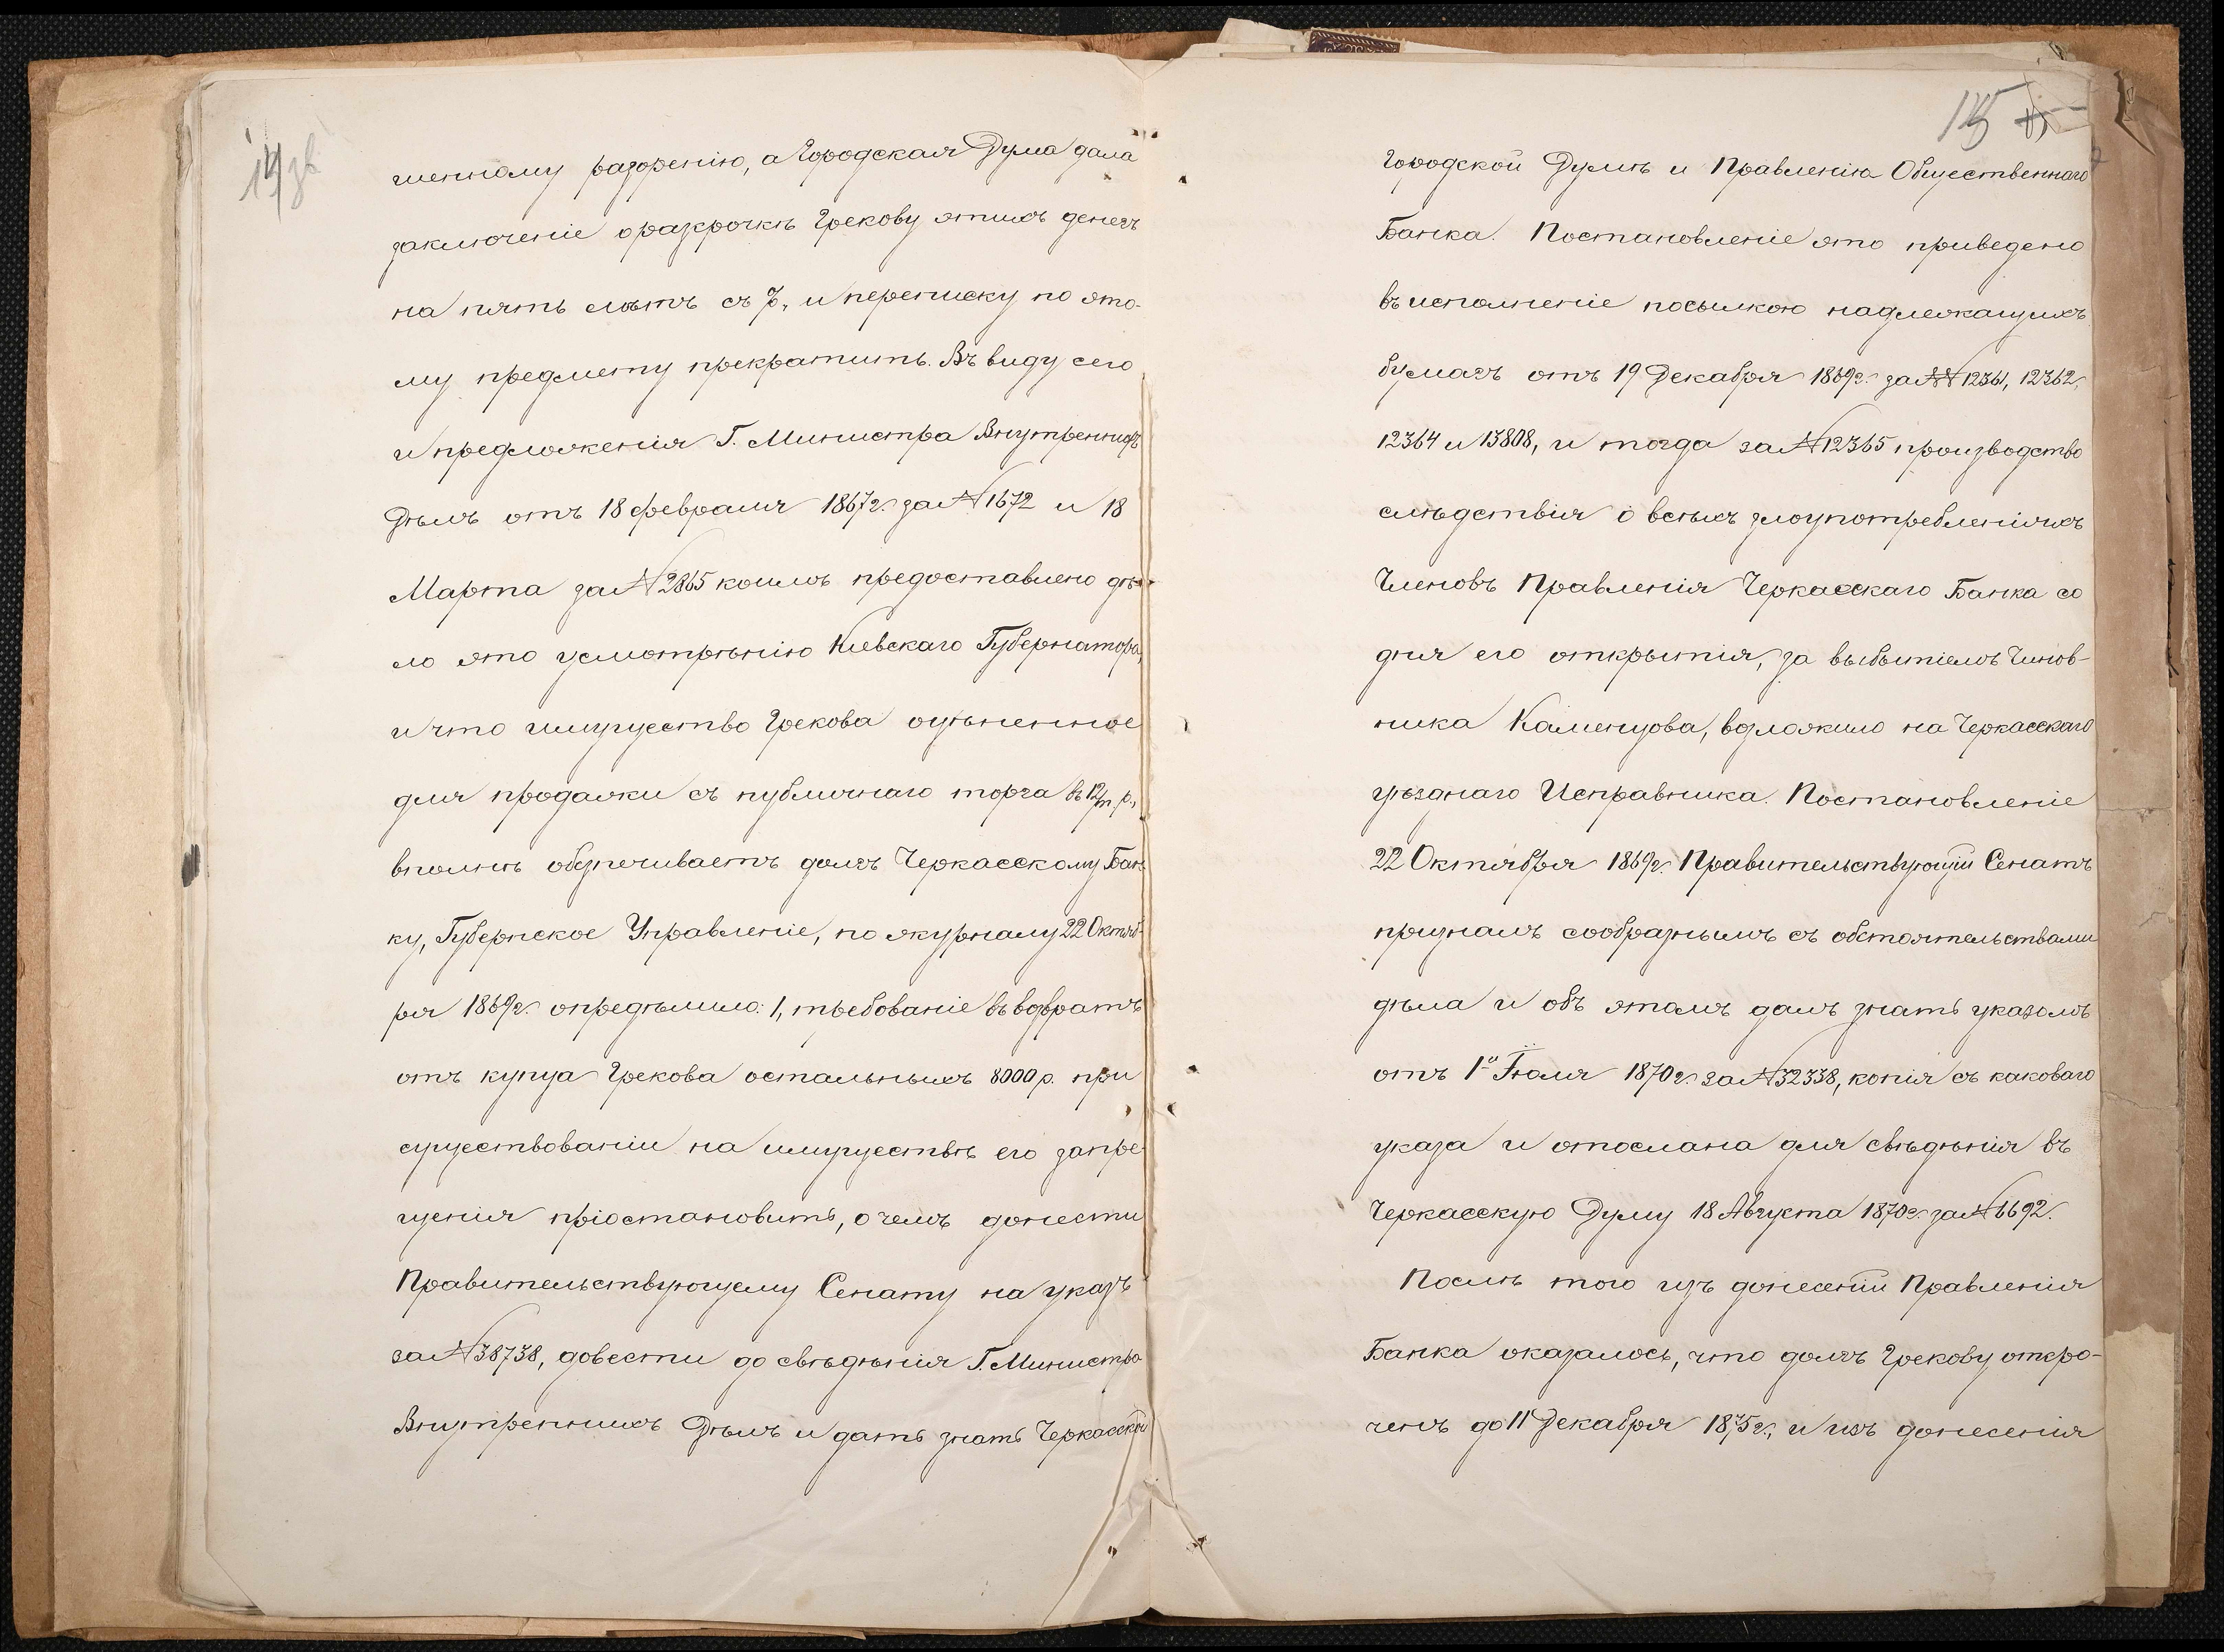 14 зв
шенному разоренію, а Городская Дума дала
заключеніе о разсрочкѣ Грекову этихъ денегъ
на пять лѣтъ съ %, и переписку по это-
му предмету прекратить. Въ виду сего
и предложенія Г. Министра Внутреннихъ
Дѣлъ отъ 18 февраля 1867 г. за № 1672 и 18
Марта за № 2865 коимъ предоставлено дѣ-
ло это усмотрѣнію Кіевскаго Губернатора,
и что имущество Грекова оцѣненное
для продажи съ публичнаго торга въ 12/т. р.,
вполнѣ обезпечиваетъ долгъ Черкасскому Бан-
ку, Губернское Управленіе, по журналу 22 Октяб-
ря 1869 г. опредѣлило: 1, требованіе въ возвратъ
отъ купца Грекова остальныхъ 8000 р. при
существованіи на имуществѣ его запре
щенія пріостановить, о чемъ донести
Правительствующему Сенату на указъ
за № 38738, довести до свѣдѣнія Г. Министра
Внутреннихъ Дѣлъ и дать знать Черкасской
15
Городской Думѣ и Правленію Общественнаго
Банка. Постановленіе это приведено
въ исполненіе посылкою надлежащихъ
бумагъ отъ 19 Декабря 1869 г. за №№ 12361, 12362,
12364 и 13808, и тогда за № 12365 производство
слѣдствія о всѣхъ злоупотребленіяхъ
Членовъ Правленія Черкасскаго Банка со
дня его открытія, за выбытіемъ Чинов-
ника Каменцова, возложило на Черкасскаго
уѣзднаго Исправника. Постановленіе
22 Октября 1869 г. Правительствующій Сенатъ
призналъ сообразнымъ съ обстоятельствами
дѣла и объ этомъ далъ знать указомъ
отъ 1го Іюля 1870 г. за № 32338, копія съ каковаго
указа и отослана для свѣдѣнія въ
Черкасскую Думу 18 Августа 1870 г. за № 6692.
Послѣ того изъ донесеній Правленія
Банка оказалось, что долгъ Грекову отсро-
ченъ до 11 Декабря 1875 г., и изъ донесенія